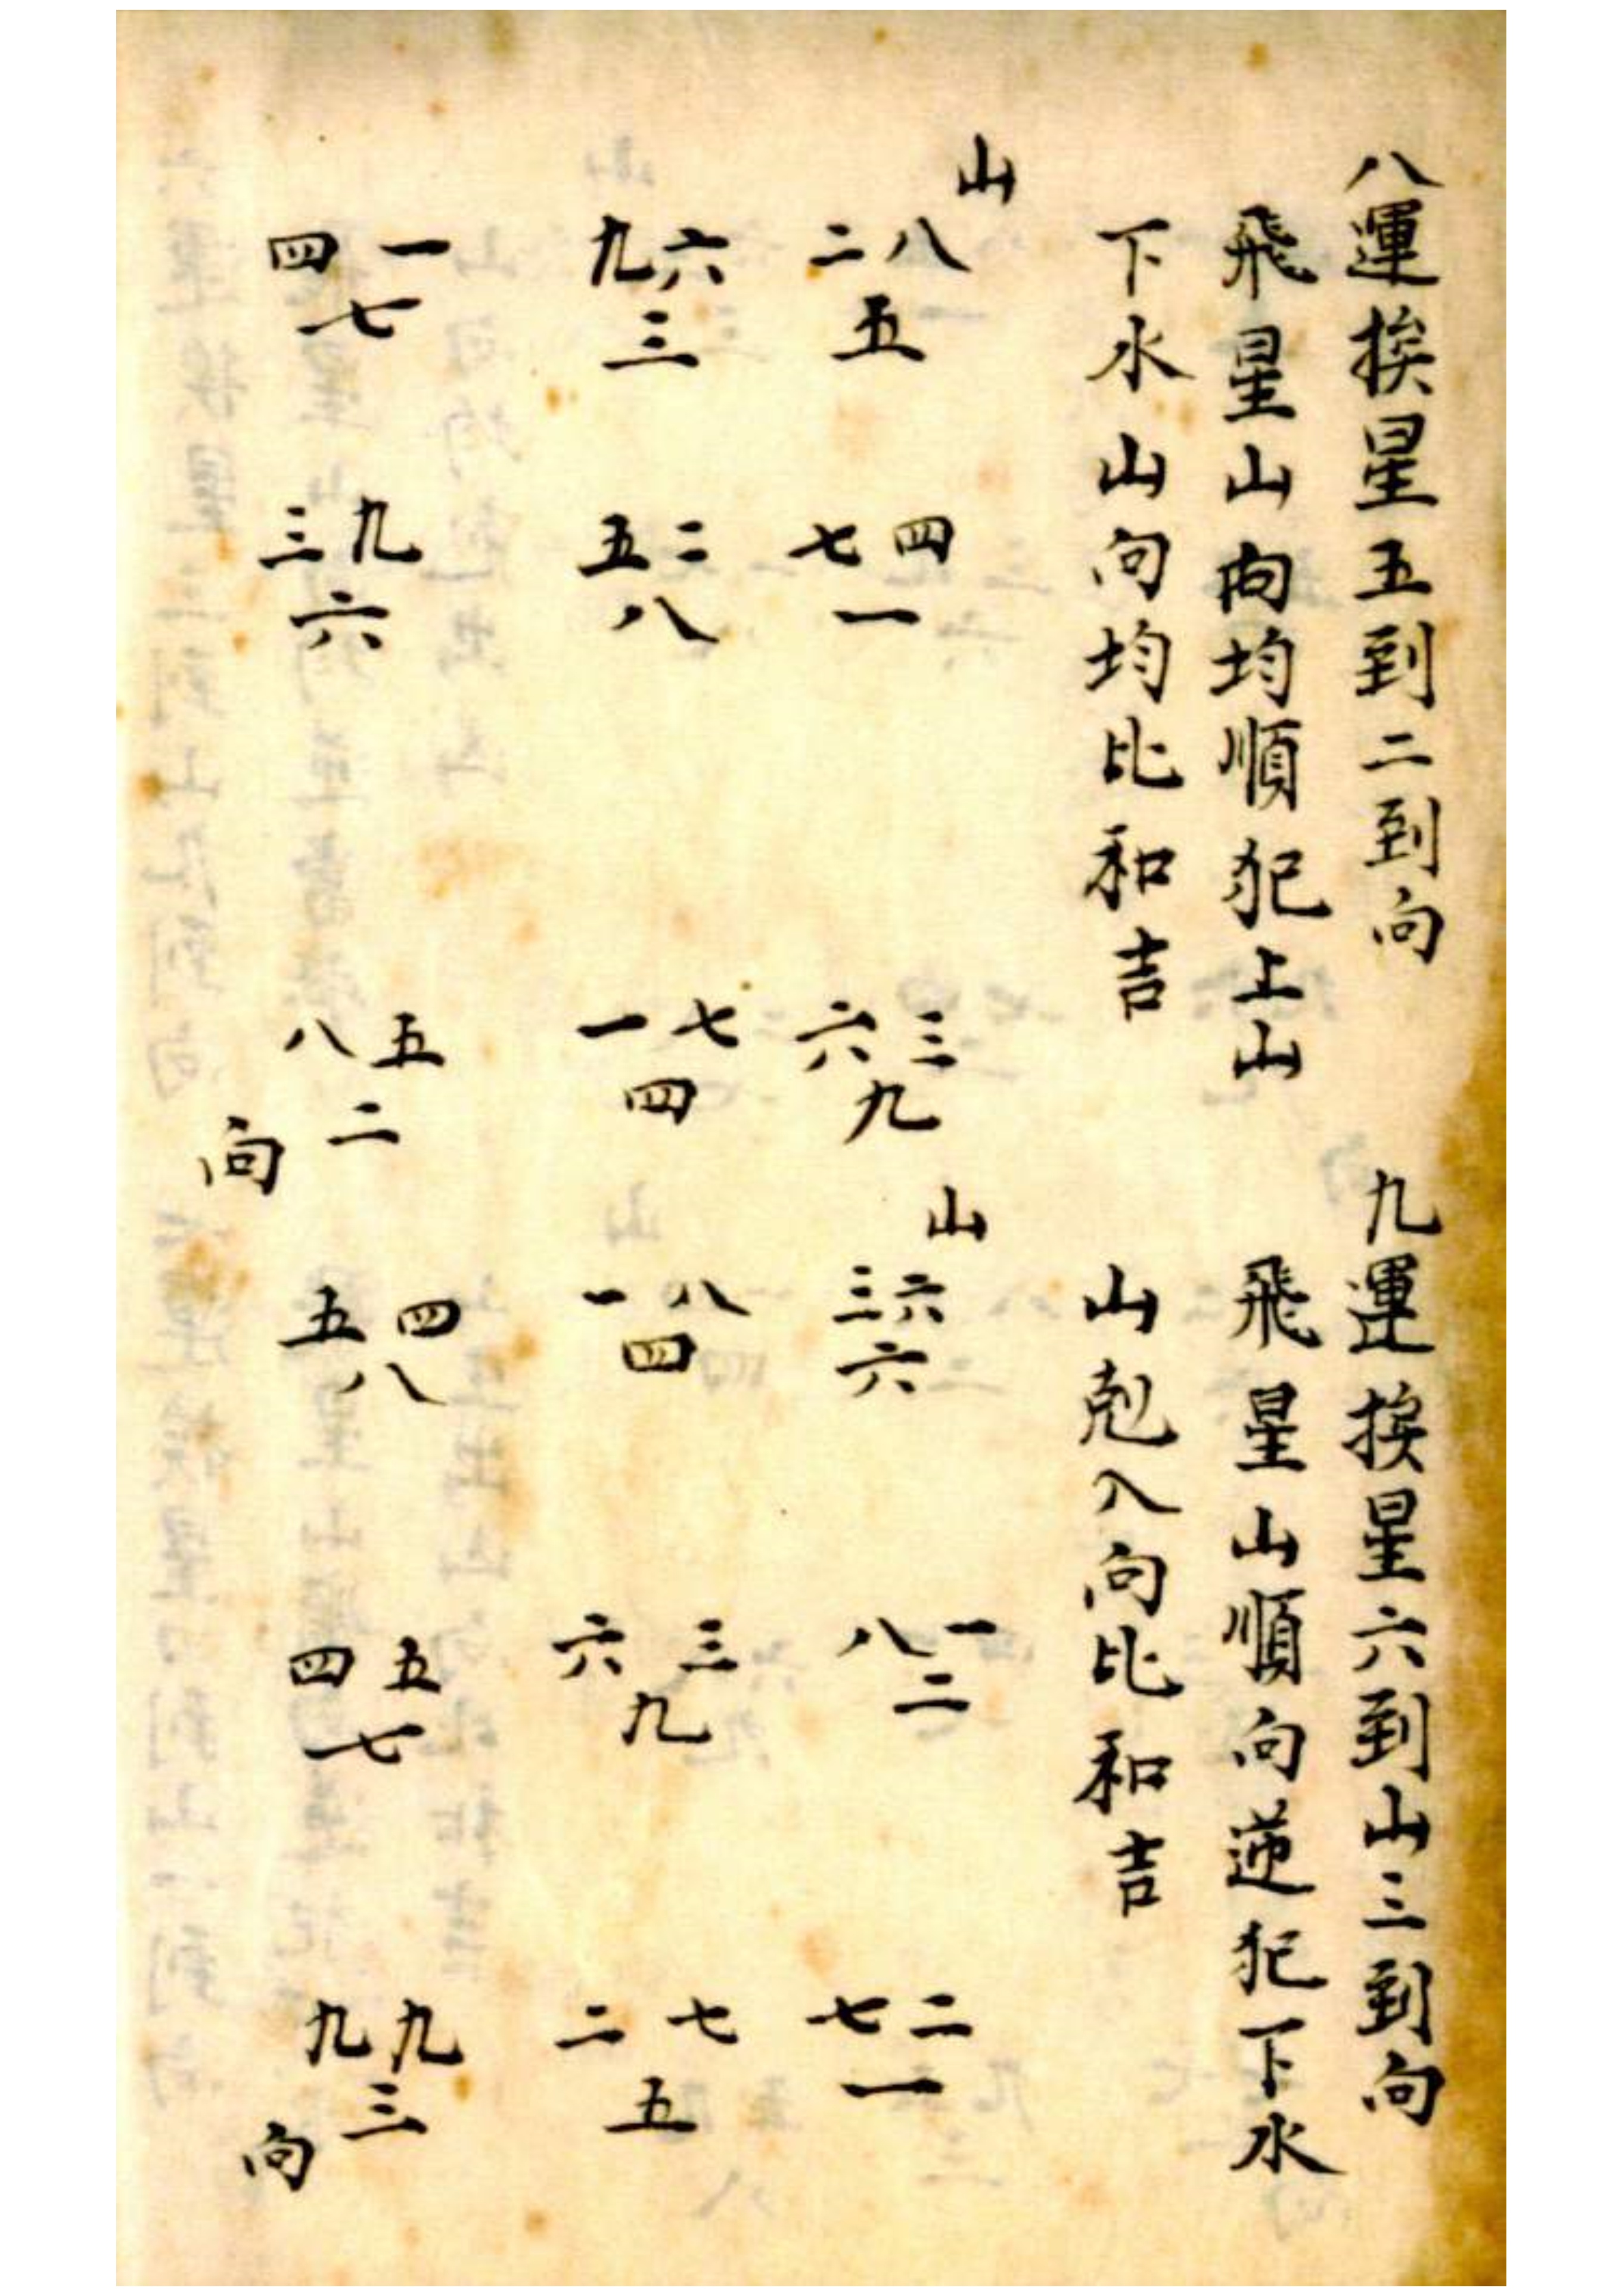 八運挨星五到二到向
飛星山向均順犯上山
下水山向均比和吉
山
二八
五
七四
一
六三
九
九六
三
五二
八
一七
四
四一
七
三九
六
八五
二
向
九運挨星六到山三到向
飛星山順向逆犯下水
山剋入向比和吉
山
三六
六
八一
二
七二
一
一八
四
六三
九
二七
五
五四
八
四五
七
九九
三
向